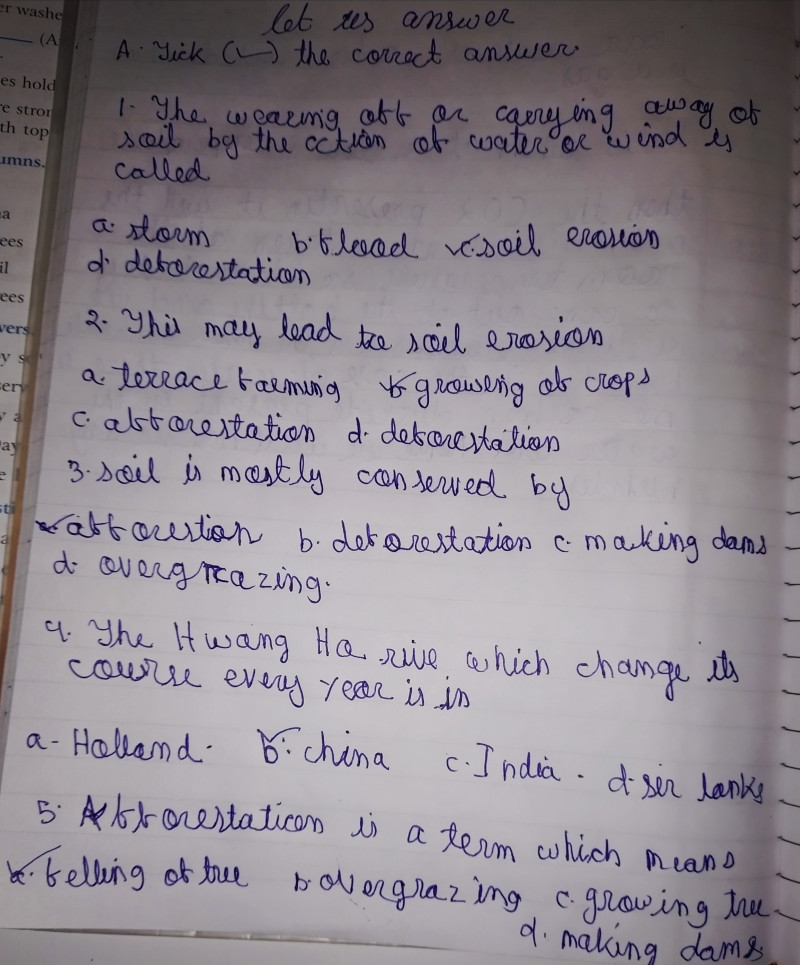 er washe
(A
es hold
e stron
th top
umns.
a
ees
il
ees
vers
let us answer
A. Tick (✓) the correct answer.
1. The wearing off or carrying away of
soil by the action of water or wind is
called
a. storm b. flood ✓c. soil erosion
d. deforestation
2. This may lead to soil erosion
a. terrace farming ✓b. growing of crops
c. afforestation d. deforestation
3. soil is mostly conserved by
✓a. afforestion b. deforestation c. making dams
d. overgrazing.
4. The Hwang Ho rive which change its
course every year is in
a. Holland. ✓b. china c. India. d. sir lanks
5. Afforestation is a term which means
✓a. felling of tree b. overgrazing c. growing tree
d. making dams